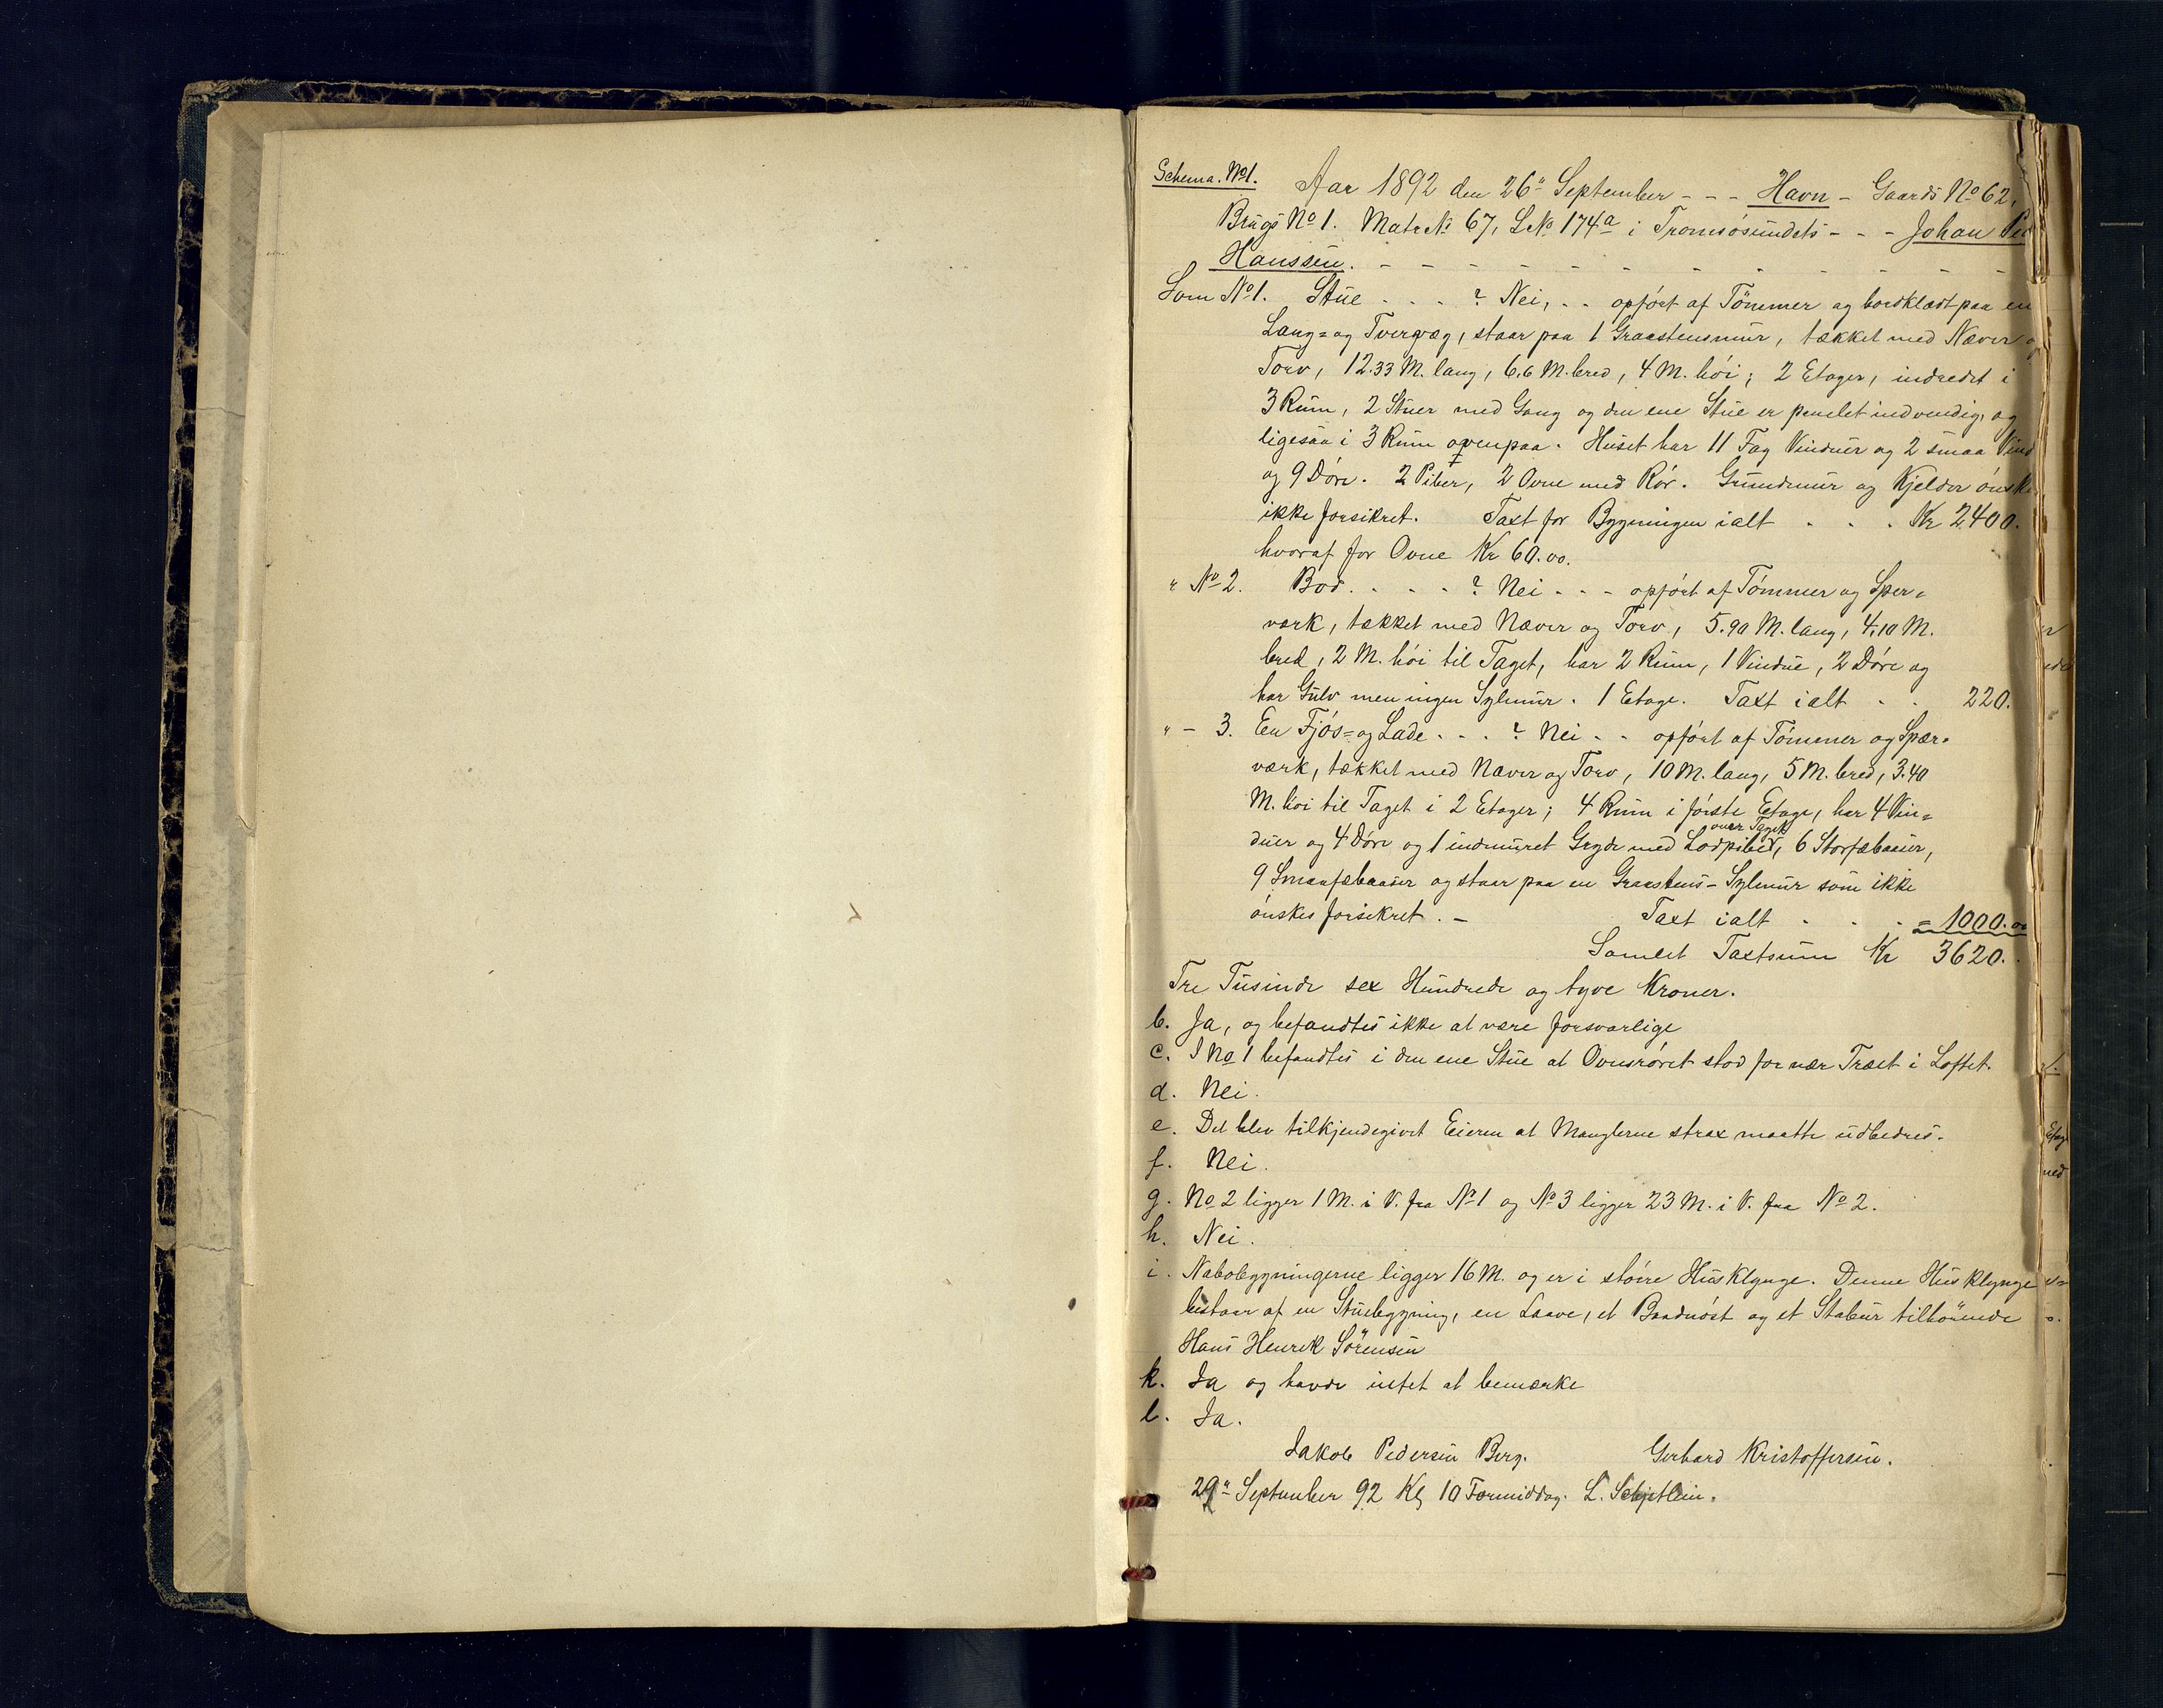 Schema. No 1. Aar 1892 den 26" September - - - Havn - Gaards No 62,
Brugs No 1. Matr No 67, L No 174a i Tromsösundets - - - Johan Pe
Hanssen. - - - - - - - - - - - -
Som No 1. Stue - - - ? Nei, - - opført af Tömmer og bordklædt paa en
Lang= og Tvervæg, staar paa 1 Graastensmur, tækket med Næver o
Torv, 12.33 M. lang, 6.6 M. bred, 4 M. høi; 2 Etager, indredet i
3 Rum, 2 Stuer med Gang og den ene Stue er panelet indvendig, og
ligesaa i 3 Rum ovenpaa. Huset har 11 Fag Vinduer og 2 smaa Vind
og 9 Døre. 2 Piber, 2 Ovne med Rör. Grundmur og Kjelder ønske
ikke forsikret. Taxt for Bygningen ialt - - - Kr 2400.
hvoraf for Ovne Kr 60.00.
" No 2. Bod. - - - - ? Nei - - - opført af Tømmer og Sper=
værk, tækket med Næver og Torv, 5.90 M. lang, 4.10 M.
bred, 2 M. høi til Taget, har 2 Rum, 1 Vindue, 2 Døre og
har Gulv men ingen Sylmur. 1 Etage. Taxt ialt - - 220.
" - 3. En Fjøs= og Lade - - - ? Nei - - opført af Tømmer og Spær=
værk, tækket med Næver og Torv, 10 M. lang, 5 M. bred, 3.40
M. høi til Taget i 2 Etager; 4 Rum i første Etage, har 4 Vin=
over Taget
duer og 4 Døre og 1 indmuret Gryde med Lodpibe, 6 Storfæbaaser,
9 Smaafæbaaser og staar paa en Graastens-Sylmur som ikke
ønskes forsikret. - Taxt ialt - - - = 1000.00
Samlet Taxtsum Kr 3620.
Tre Tusinde sex Hundrede og tyve Kroner.
b. Ja, og befandtes ikke at være forsvarlige
c. I No 1 befandtes i den ene Stue at Ovnsrøret stod for nær Træet i Loftet.
d. Nei.
e. Det blev tilkjendegivet Eieren at Manglerne strax maatte udbedres.
f. Nei.
g. No 2 ligger 1 M. i V. fra No 1 og No 3 ligger 23 M. i V. fra No 2.
h. Nei.
i. Nabobygningerne ligger 16 M. og er i større Husklynge. Denne Husklynge
bestaar af en Stuebygning, en Laave, et Baadnøst og et Stabur tilhørende
Hans Henrik Sörensen
k. Ja og havde intet at bemærke
l. Ja.
Jakob Pedersen Berg. Gerhard Kristoffersen.
29" September 92 Kl 10 Formiddag. L. Schjetlein.